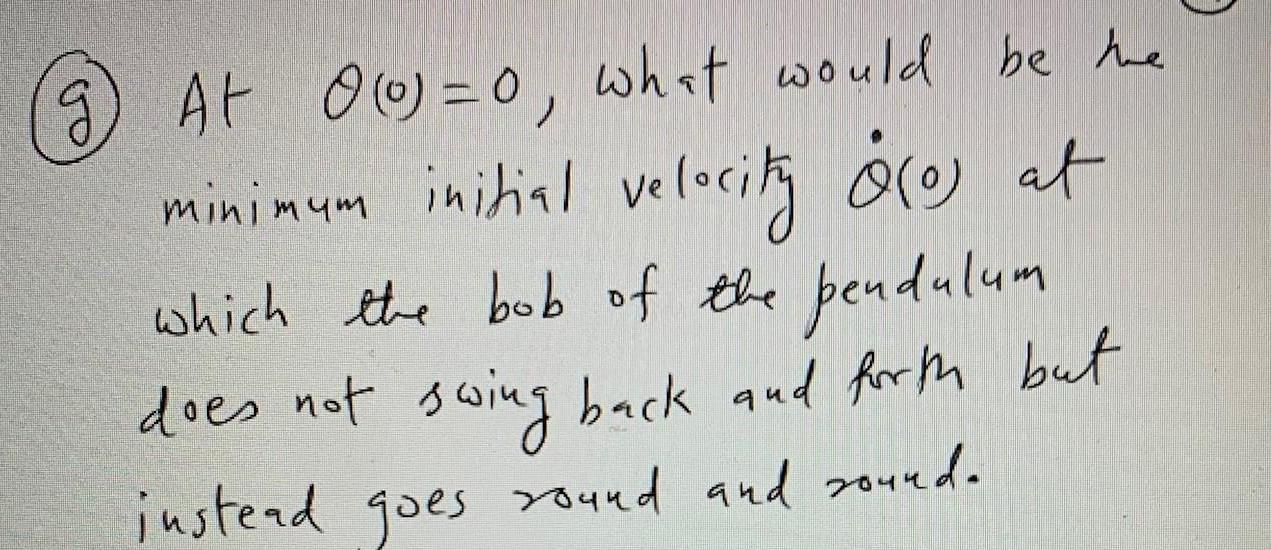 (g) At θ(0) = 0, what would be the
minimum initial velocity θ̇(0) at
which the bob of the pendulum
does not swing back and forth but
instead goes round and round.